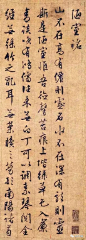 陋室銘
山不在高有僊則名水不在深有龍則靈
斯是陋室惟吾德馨苔痕上階綠草色入
簾青談笑有鴻儒往來無白丁可以調素琴閱金
經無絲竹之亂耳無案牘之勞形南陽諸葛